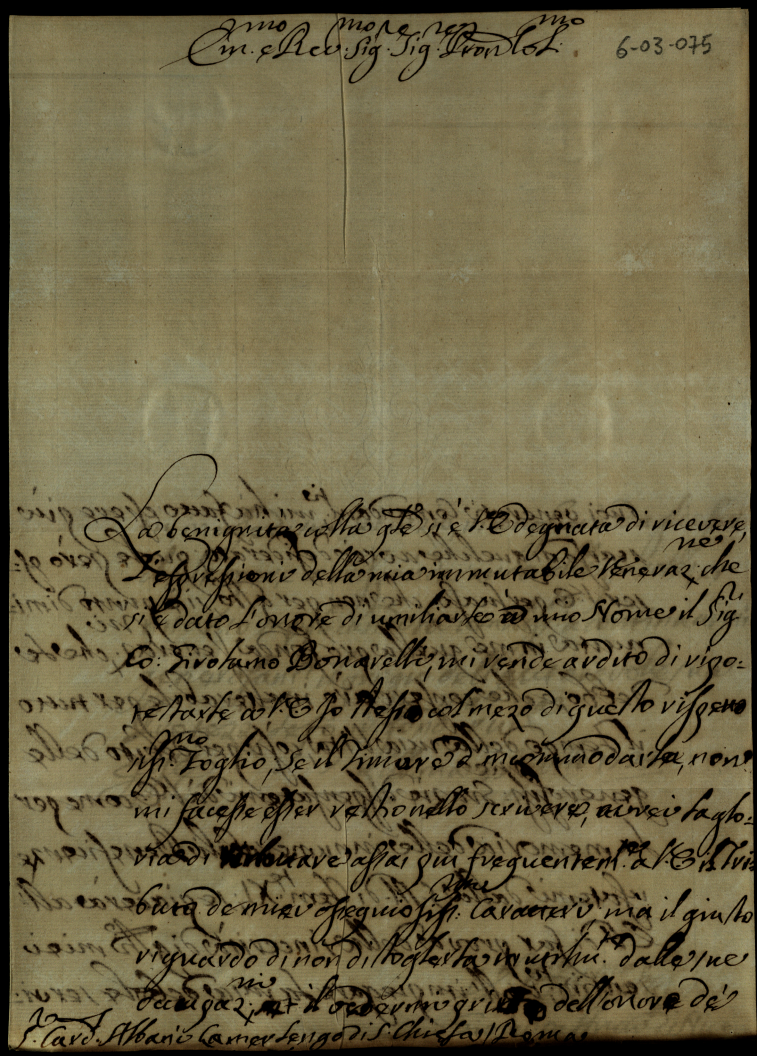 Em.mo e Rev.mo Sig.re Sig.re Pron Col.mo
6-03-075
La benignità colla qle si è l'E degnata di ricevere,
L'espressioni della mia immutabile Veneraz.ne, che
si è dato l'onore di umiliarle à mio Nome il Sig.r
Co: Girolamo Bonarelli, mi rende ardito di
testarle a V.E. Io stesso col mezo di questo
Foglio, se il timore d'incommodarla, non
mi facesse esser nello scrivere, avrei la glo-
ria di tributare assai più frequentem.te a V.E. il Tri-
buto de miei ossequiosiss.mi Caratteri, ma il giusto
riguardo di non distoglierla dalle sue
et il vedermi privo dell'onore de
S. Card. Albani Camerlengo di S. Chiesa / Roma